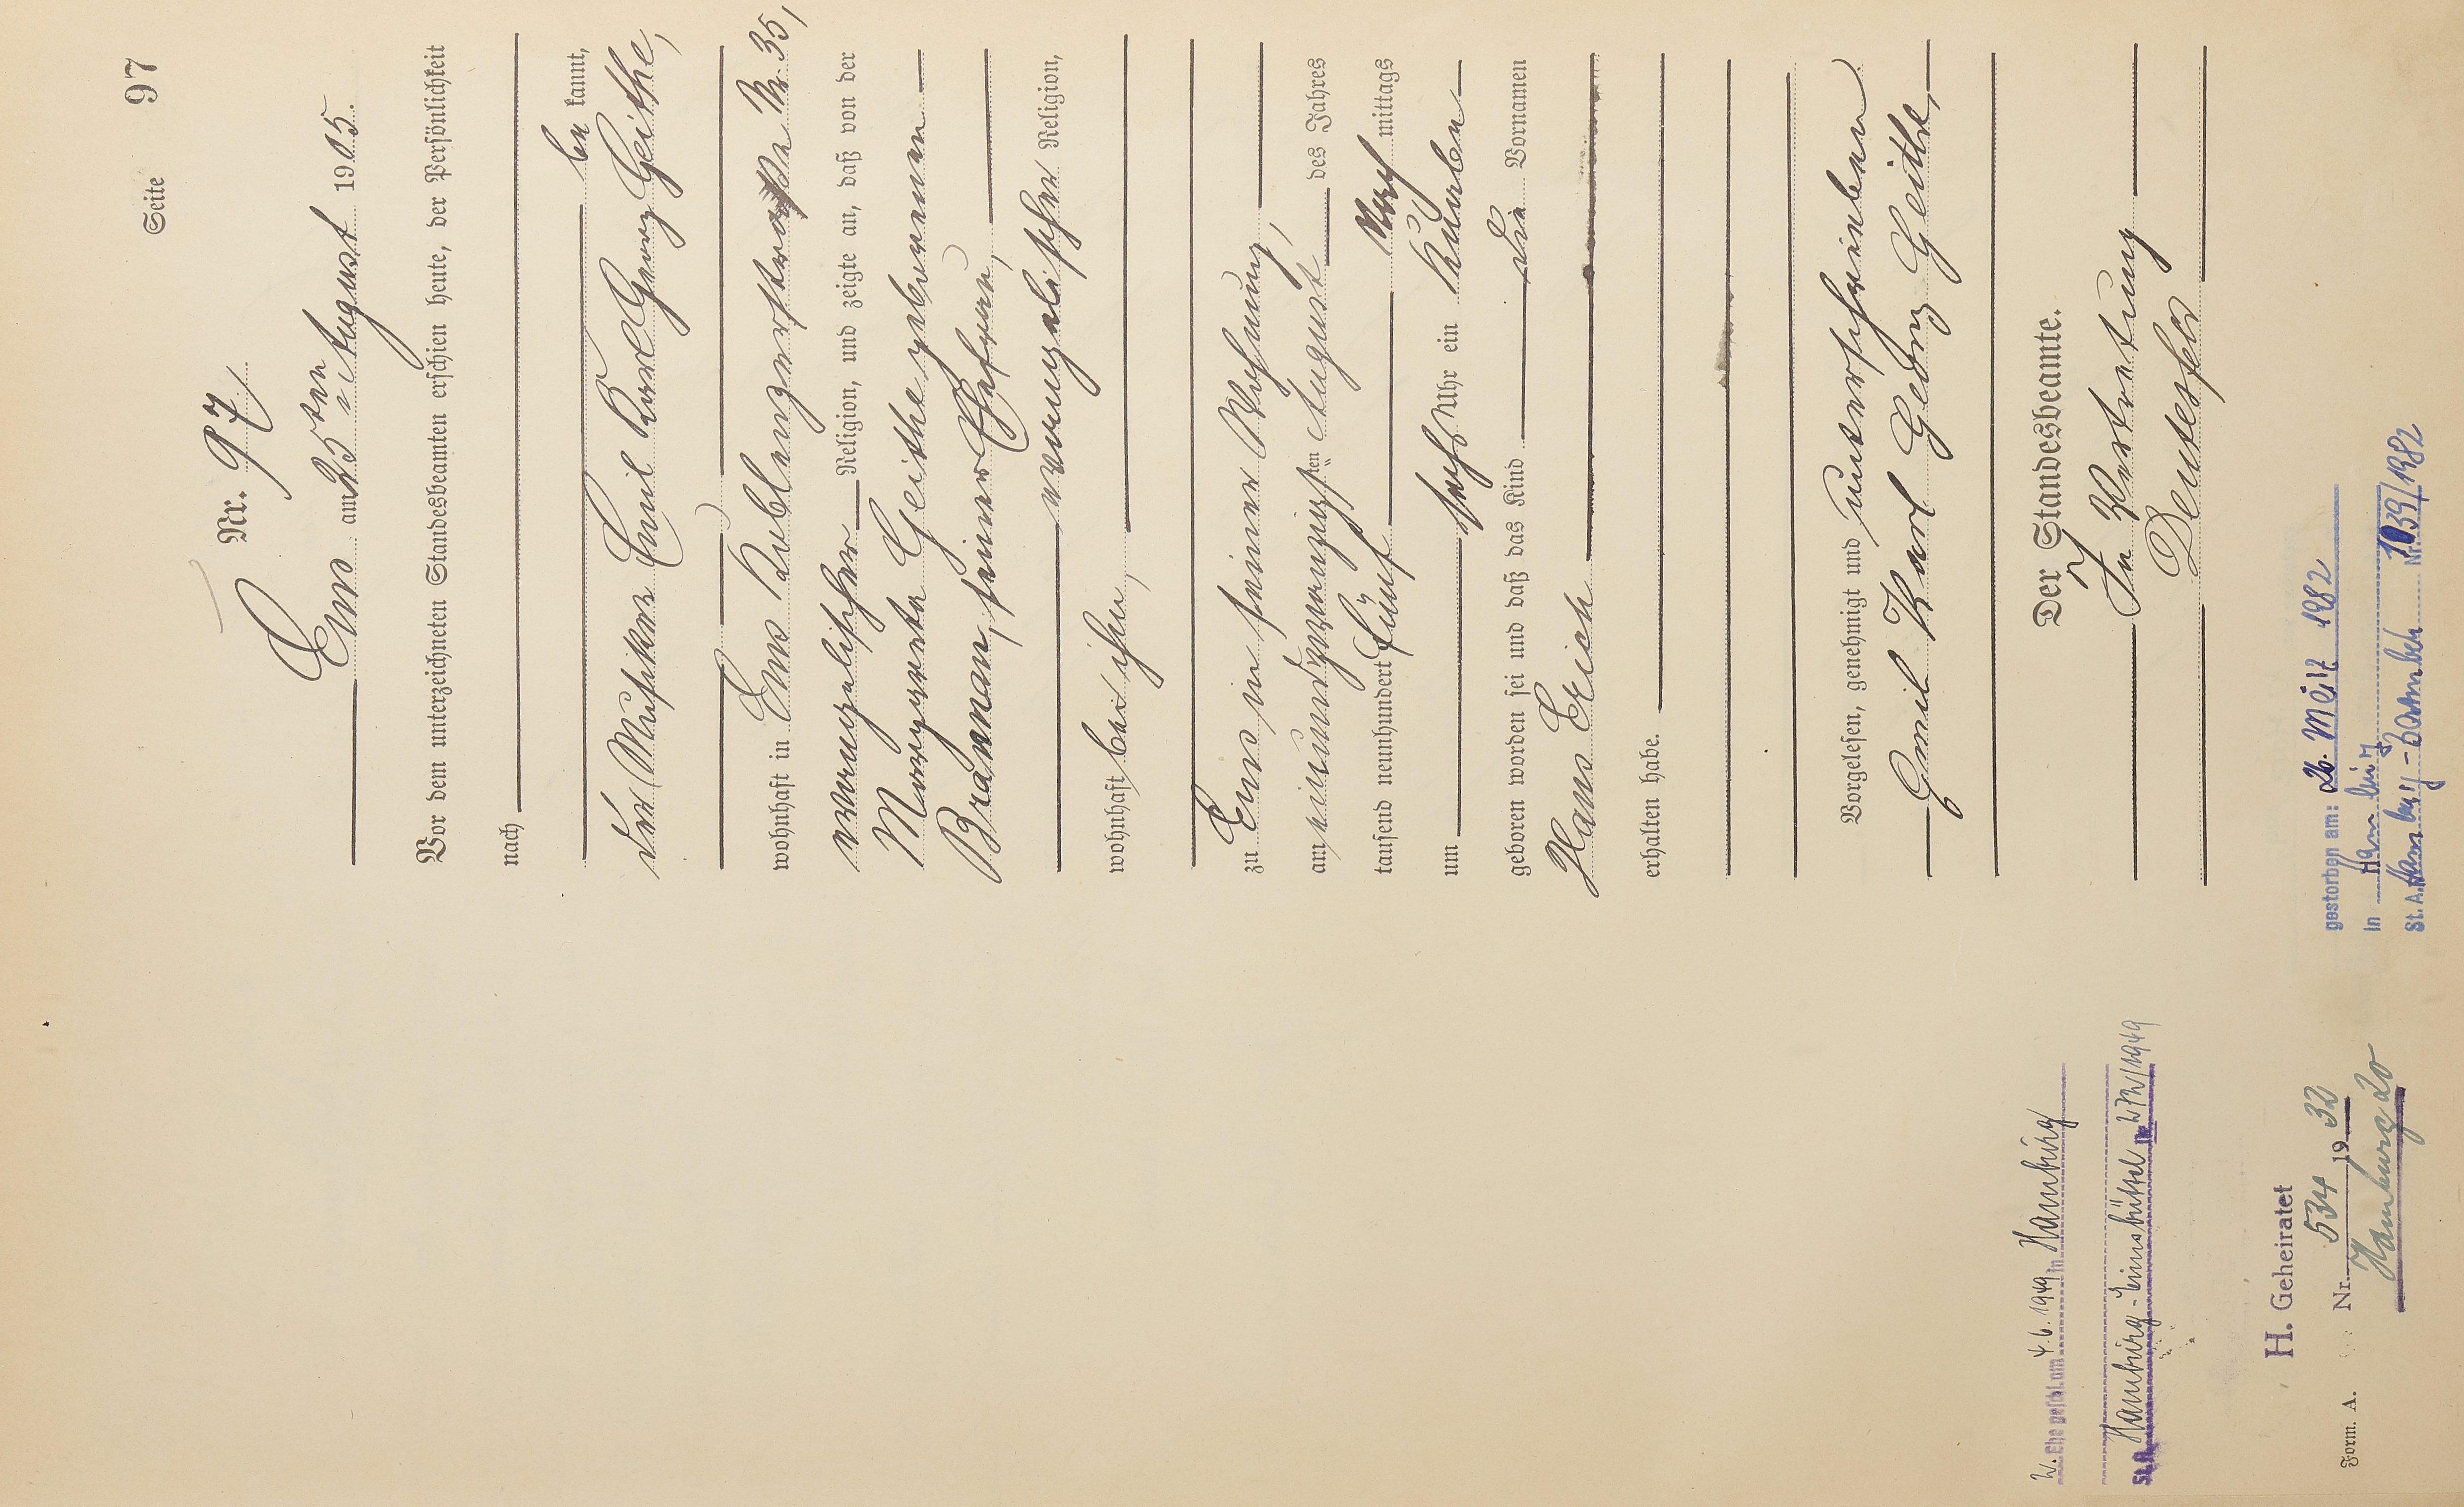 Seite 97
Nr. 97
Ems am 25ten August 1905.
Vor dem unterzeichneten Standesbeamten erschien heute, der Persönlichkeit
nach
be kannt,
der Musiker Emil Karl Georg Geithe,
wohnhaft in Ems Koblenzerstraße Nr. 35,
evangelischer Religion, und zeigte an, daß von der
Margareta Geithe geborenen
Braman, seiner Ehefrau,
evangelischer Religion,
wohnhaft bei ihm,
zu Ems in seiner Wohnung,
am einundzwanzigsten August des Jahres
tausend neunhundert fünf Nach mittags
um sechs Uhr ein Knabe
geboren worden sei und daß das Kind die Vornamen
Hans Erich
erhalten habe.
Vorgelesen, genehmigt und unterschrieben
Emil Karl Georg Geithe,
Der Standesbeamte.
In Vertretung
gestorben am: 26. März 1982
in Hamburg
St.A. Hamburg-Barmbek Nr. 1039/1982
2. Ehe geschl. am 4.6.1949 in Hamburg
St.A. Hamburg-Eimsbüttel Nr.
H. Geheiratet
Nr. 534 1932
Hamburg 20
Form. A.